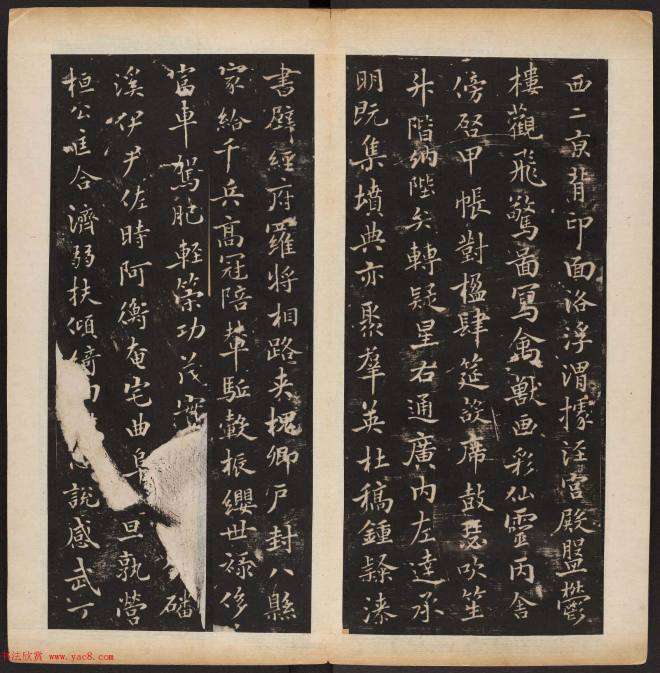 西二京背邙面洛浮渭據涇宮殿盤鬱
樓觀飛驚啚寫禽獸画彩仙靈丙舍
傍啓甲帳對楹肆筵設席鼓瑟吹笙
升階納陛弁轉疑星右通廣内左達承
明既集墳典亦聚羣英杜稿鍾隸漆
書壁經府羅將相路夾槐卿戶封八縣
家給千兵高冠陪輦駈轂振纓世祿侈
富車駕肥軽策功茂實磻
溪伊尹佐時阿衡奄宅曲阜旦孰營
桓公匡合濟弱扶傾綺說感武丁
书法欣赏 www.yac8.com